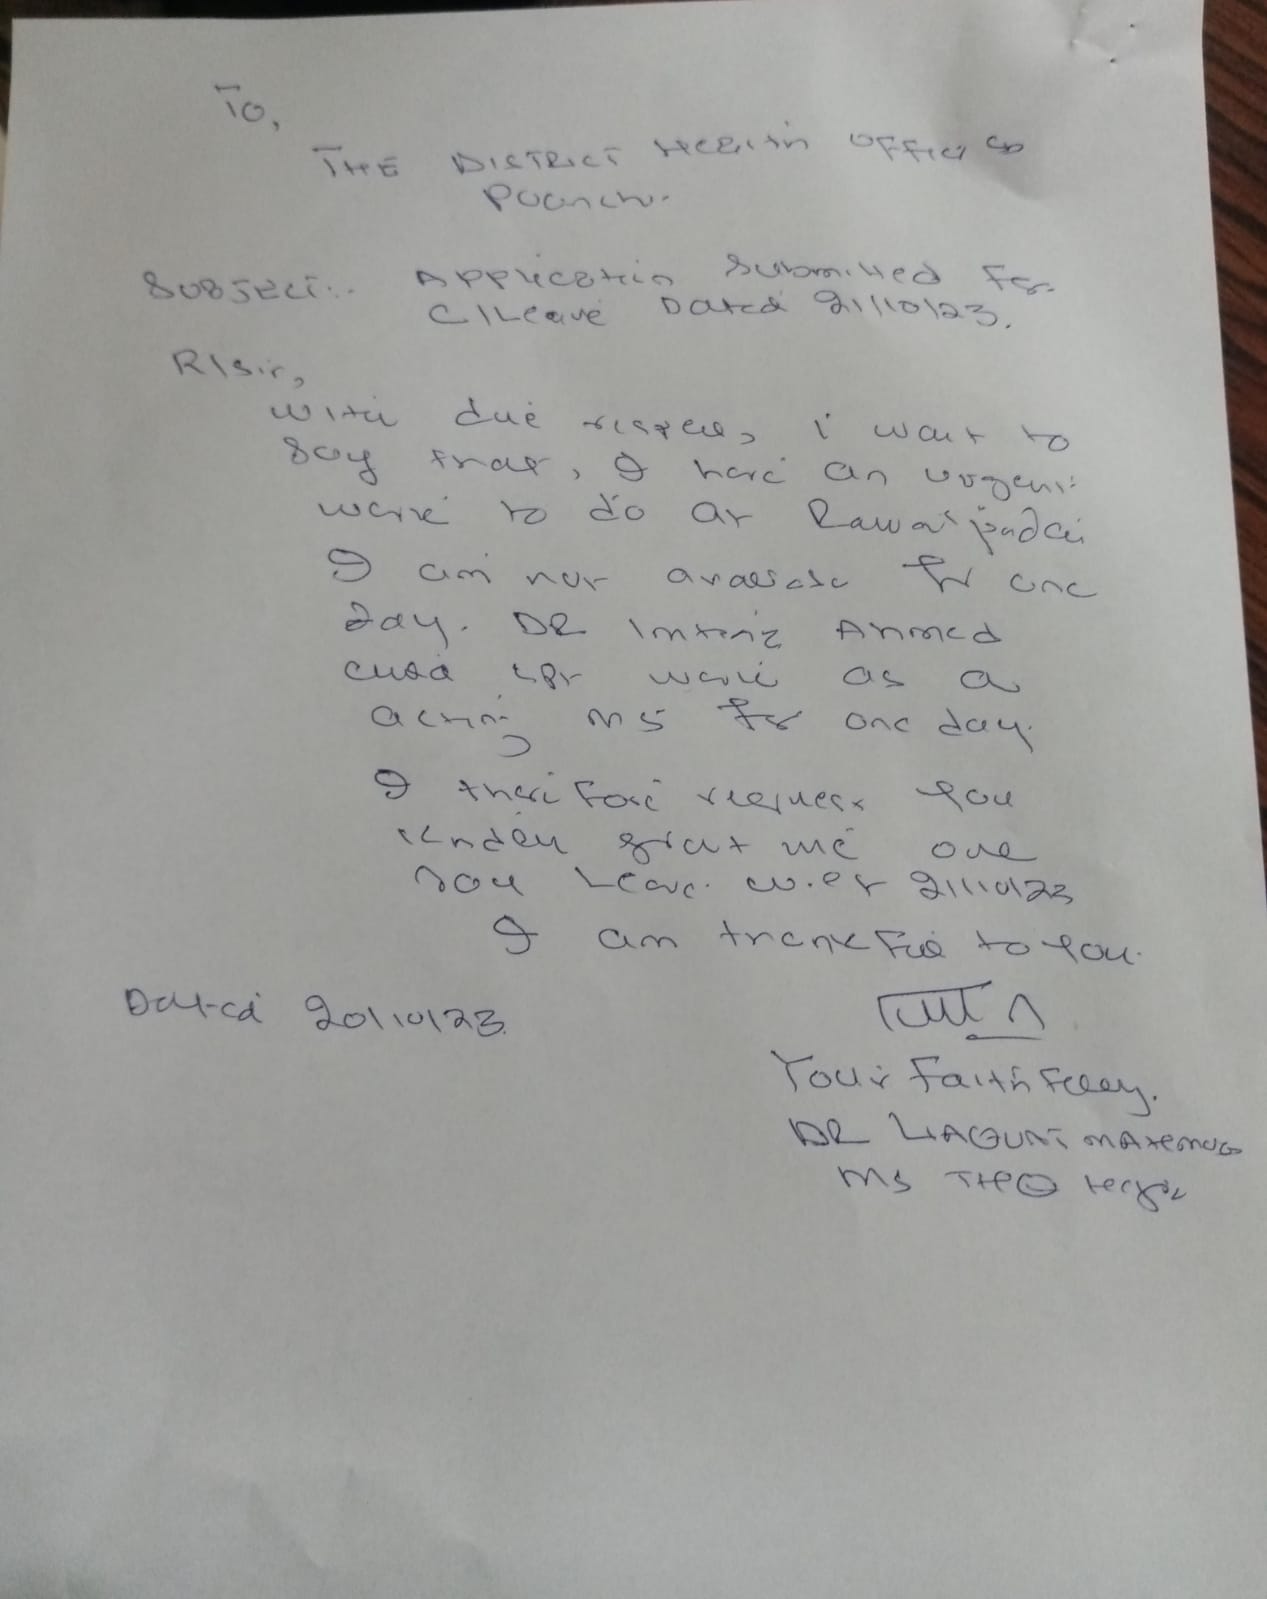 To,
THE DISTRICT Health OFFicer
Poonch.
SUBJECT:. Application Submitted For
C/Leave Dated 21/10/23.
R/Sir,
With due respect, i want to
Say that, I have an urgent
work to do at Rawalpindi
I am not available for one
day. DR Imtiaz Ahmed
work as a
acting MS for one day.
I therefore request you
kindly grant me one
day Leave. w.ef 21/10/23
I am thankful to you.
Dated 20/10/23.
Your Faithfully.
DR LIAQUAT MAHEMOOD
MS THQ